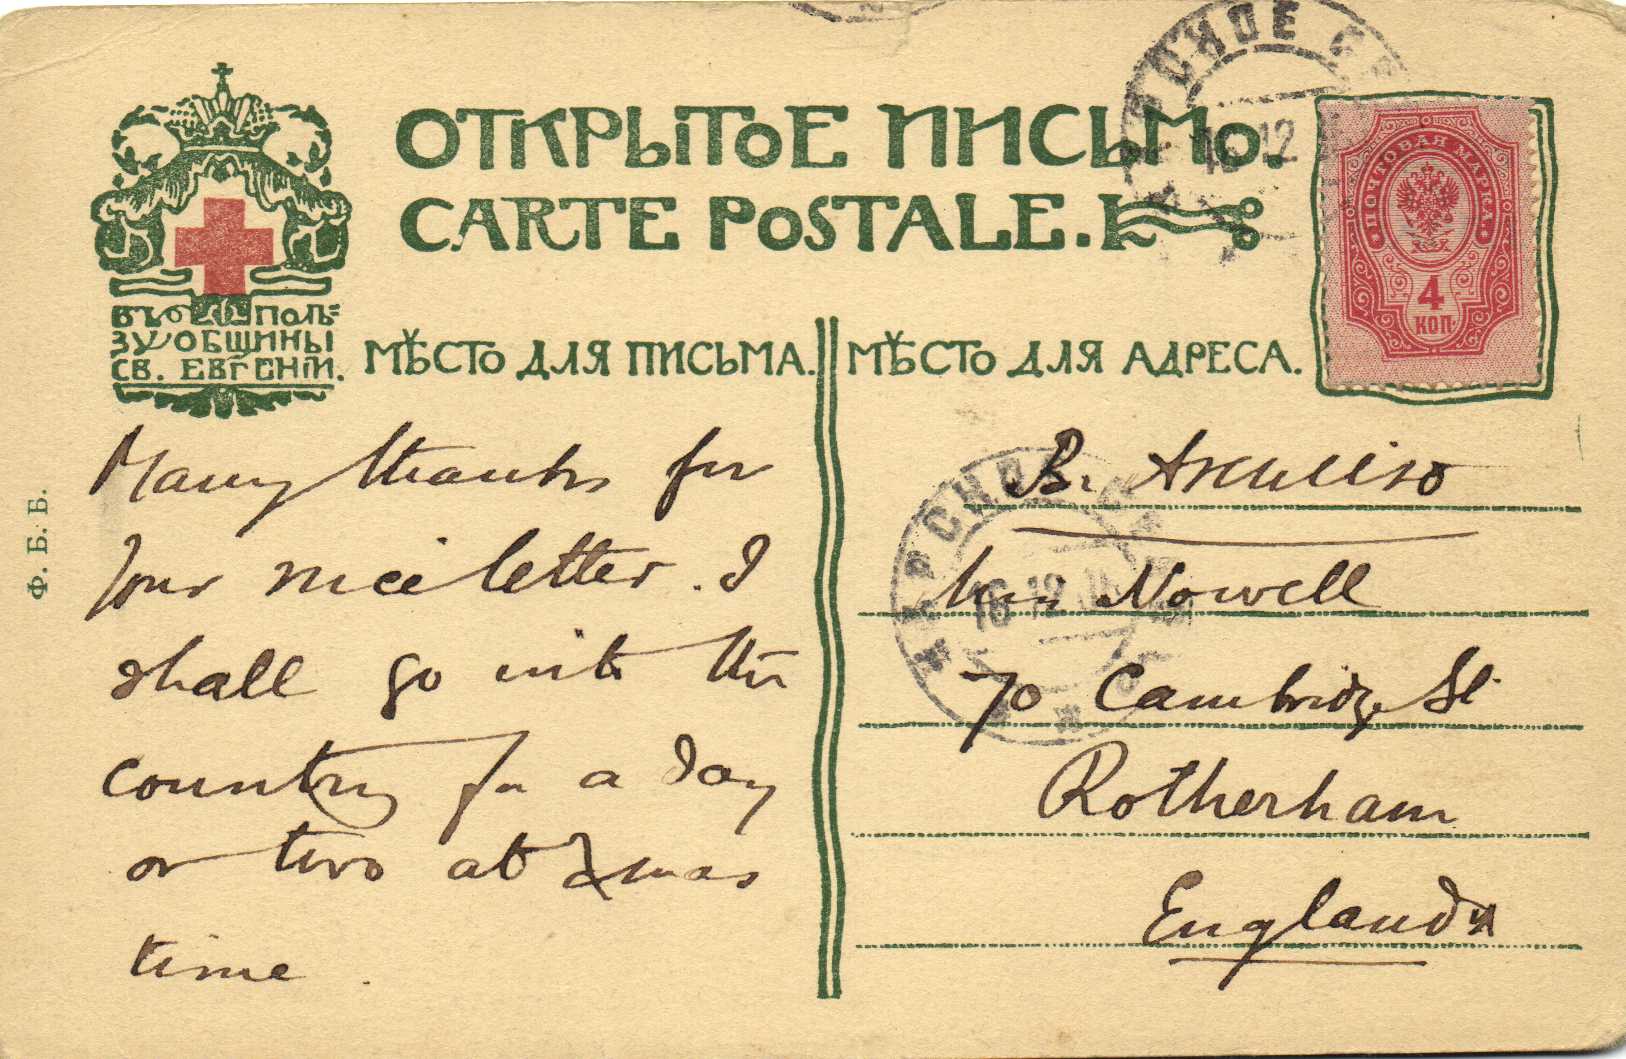 ОТКРЫТОЕ ПИСЬМО.
CARTE POSTALE.
ВЪ ПОЛЬ=
ЗУ ОБЩИНЫ
СВ. ЕВГЕНІИ.
МѢСТО ДЛЯ ПИСЬМА.
МѢСТО ДЛЯ АДРЕСА.
ПОЧТОВАЯ МАРКА
4
КОП
Ф. Б. Б.
Many thanks for
your nice letter. I
shall go into the
country for a day
or two at Xmas
time.
Въ Англію
Miss Nowell
70 Cambridge St
Rotherham
England
ЦАРСКОЕ С
16 12